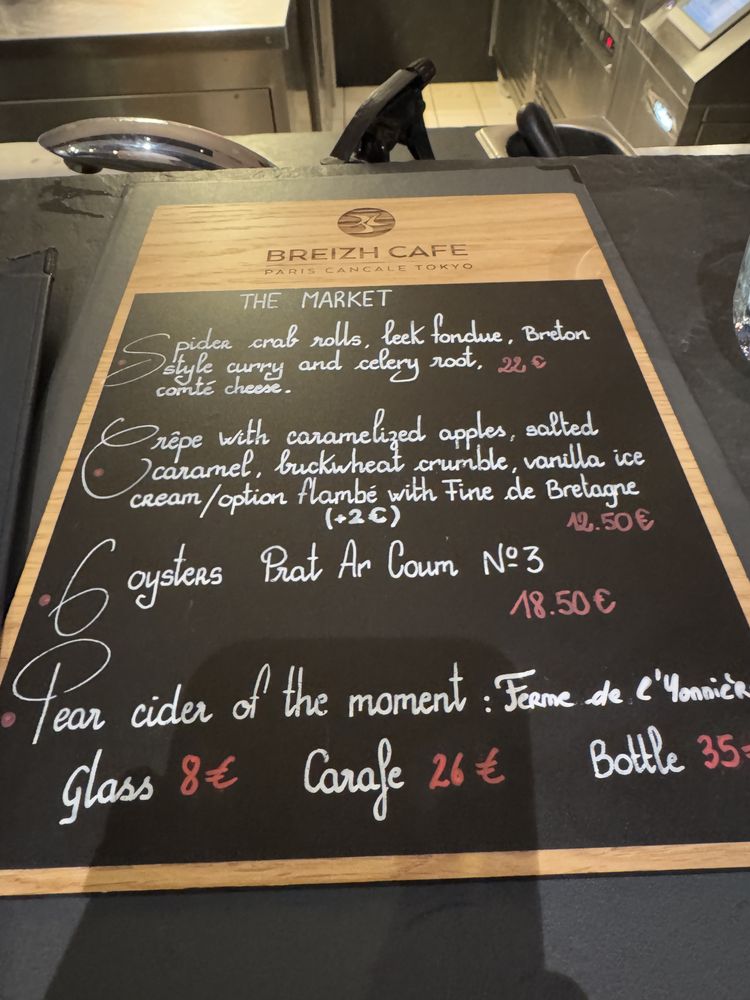 BREIZH CAFE
PARIS CANCALE TOKYO
THE MARKET
Spider crab rolls, leek fondue, Breton
style curry and celery root, 22 €
comté cheese.
Crêpe with caramelized apples, salted
caramel, buckwheat crumble, vanilla ice
cream/option flambé with Fine de Bretagne
(+2€)
12.50€
6 oysters Prat Ar Coum Nº3
18.50€
Pear cider of the moment : Ferme de l'Yonnièr
Glass 8€ Carafe 26€ Bottle 35€